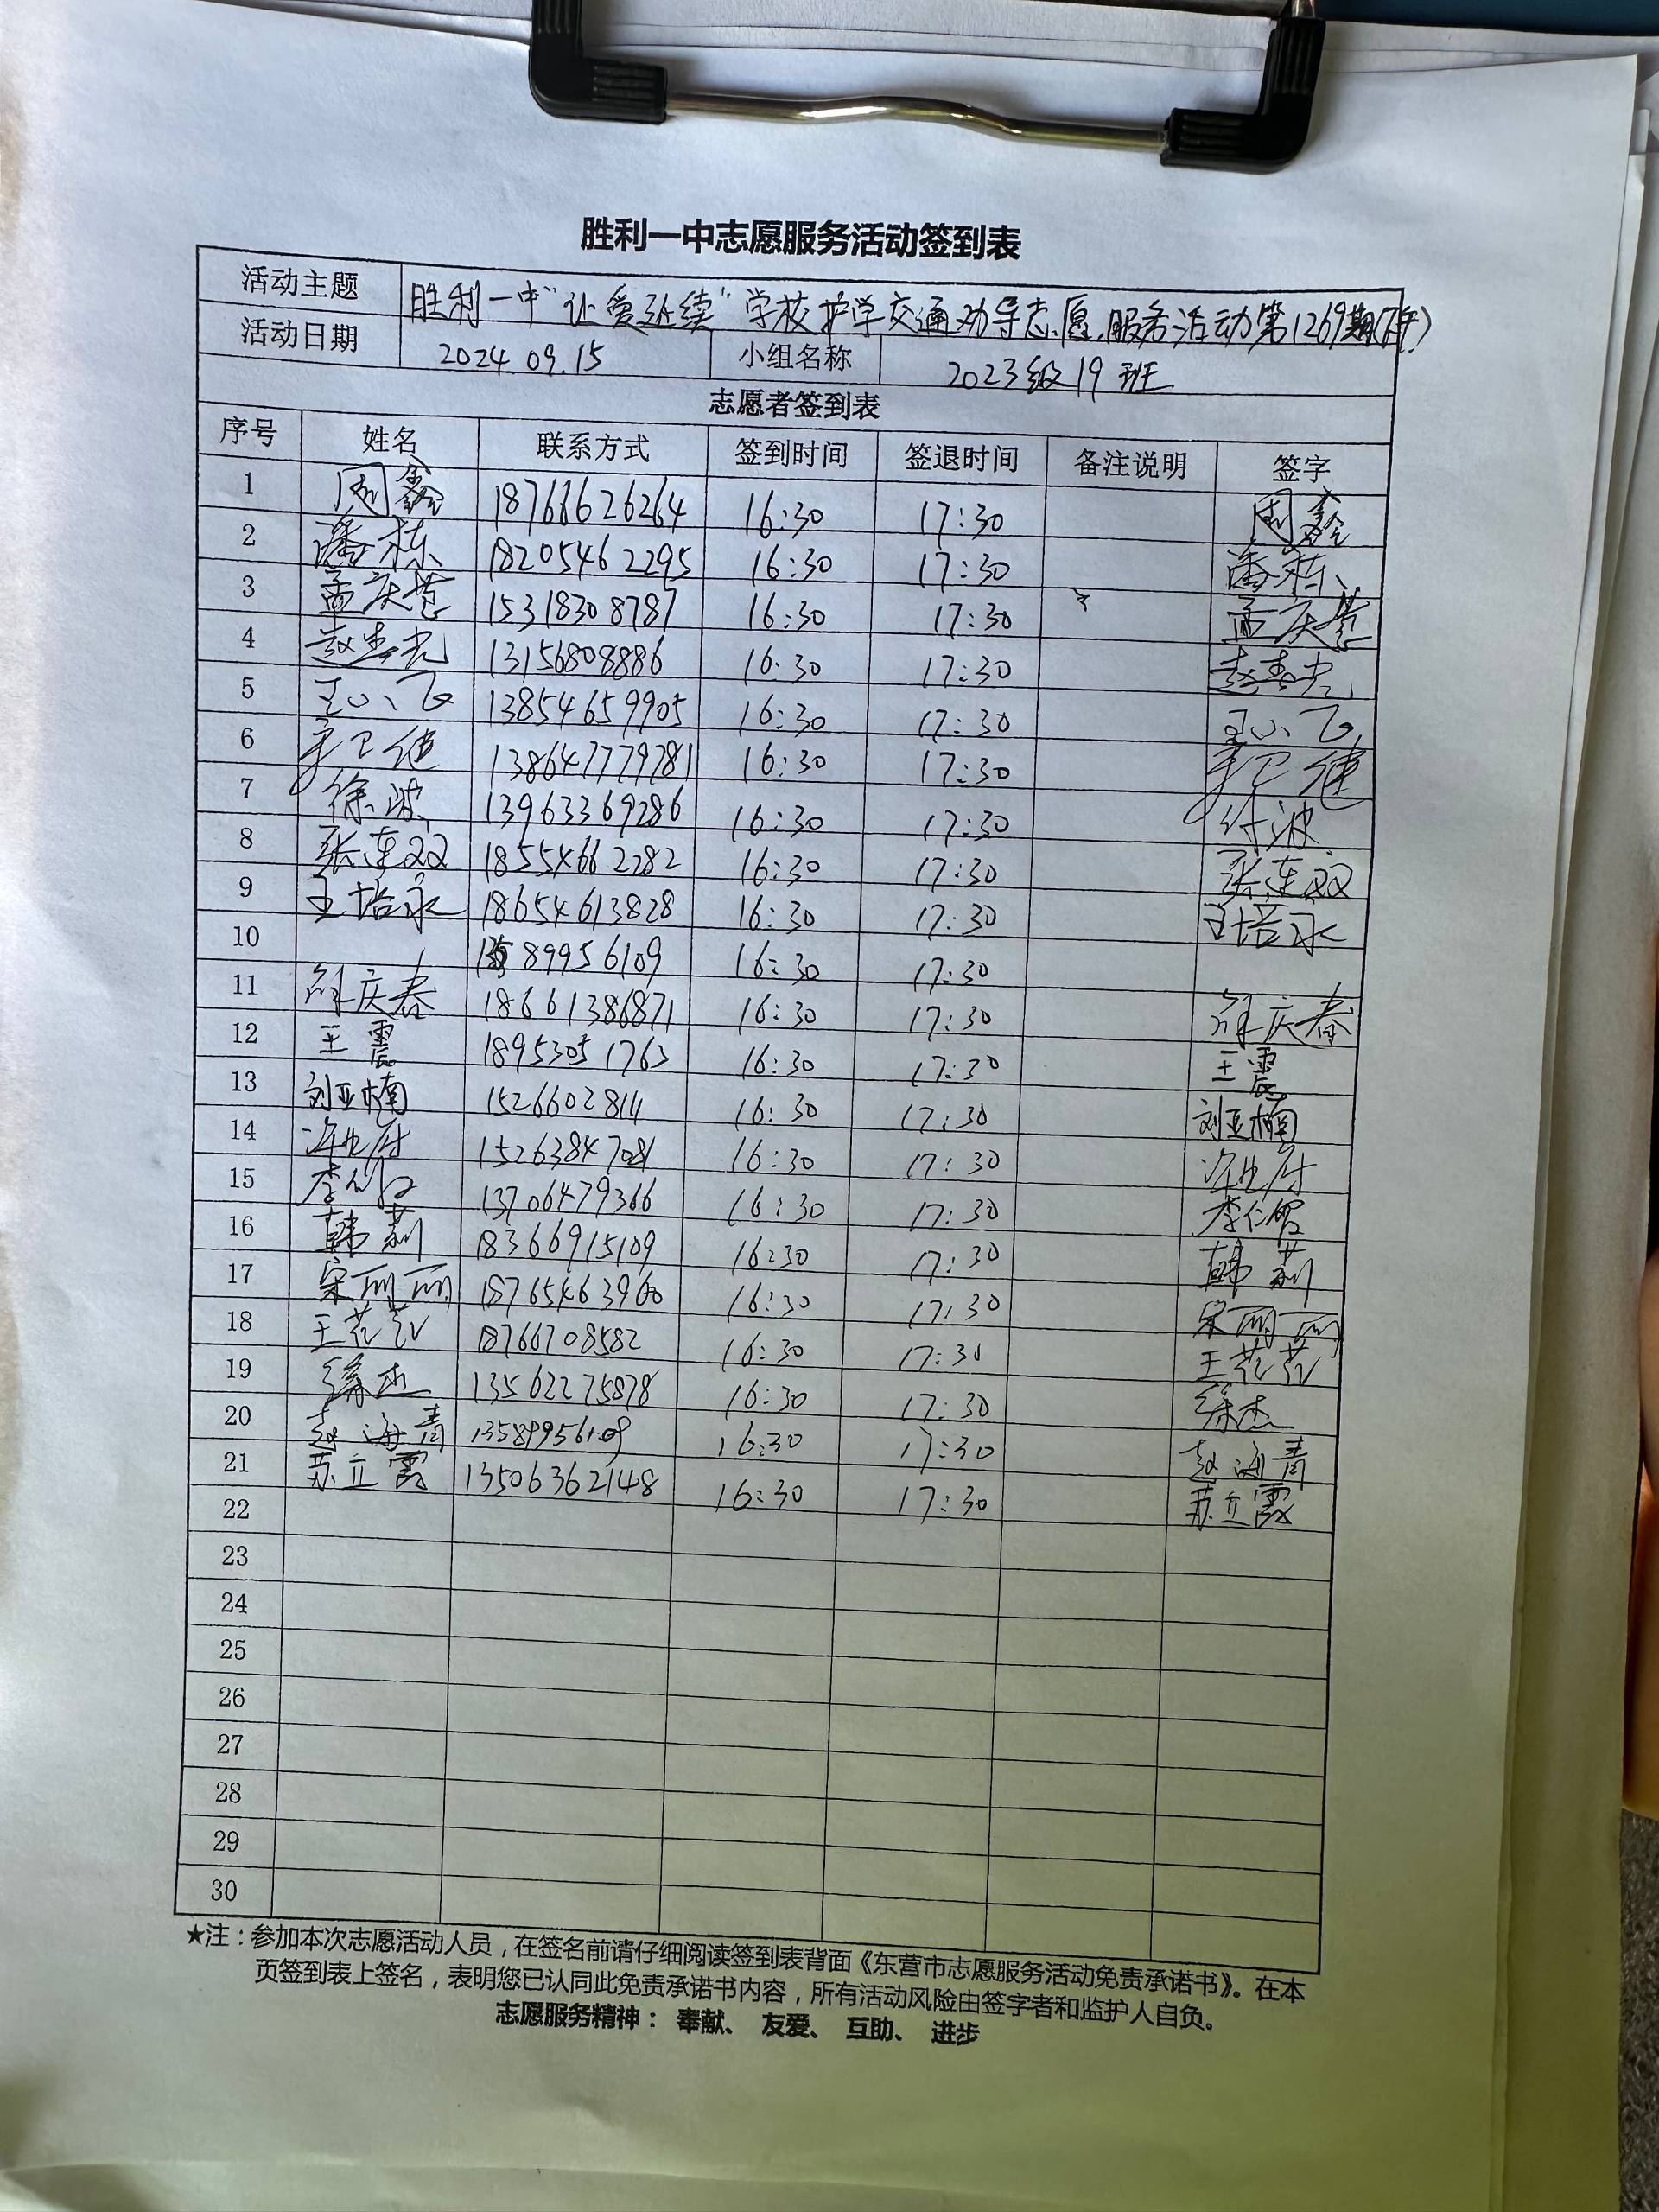 胜利一中志愿服务活动签到表
活动主题 胜利一中"让爱延续"学校护学交通劝导志愿服务活动第1269期(下午)
活动日期 2024.09.15 小组名称 2023级19班
志愿者签到表
序号 姓名 联系方式 签到时间 签退时间 备注说明 签字
1 周鑫 18766626264 16:30 17:30 周鑫
2 潘栋 18205462295 16:30 17:30 潘栋
3 孟庆慧 15318308787 16:30 17:30 孟庆慧
4 赵志光 13156808886 16:30 17:30
5 王小飞 13854659905 16:30 17:30 王小飞
6 13864777978 16:30 17:30
7 徐波 13963369286 16:30 17:30 徐波
8 张连双 18554662282 16:30 17:30 张连双
9 王培永 18654613828 16:30 17:30 王培永
10 13589956109 16:30 17:30
11 薛庆春 18661386871 16:30 17:30 薛庆春
12 王震 18953051763 16:30 17:30 王震
13 刘亚楠 1526602811 16:30 17:30 刘亚楠
14 15263847081 16:30 17:30
15 13706479366 16:30 17:30
16 韩莉 18366915109 16:30 17:30 韩莉
17 宋丽丽 18765463960 16:30 17:30 宋丽丽
18 王芹芹 18766708582 16:30 17:30 王芹芹
19 徐杰 13562275878 16:30 17:30 徐杰
20 赵海青 13589956109 16:30 17:30 赵海青
21 苏立霞 13506362148 16:30 17:30 苏立霞
22
23
24
25
26
27
28
29
30
★注：参加本次志愿活动人员，在签名前请仔细阅读签到表背面《东营市志愿服务活动免责承诺书》。在本
页签到表上签名，表明您已认同此免责承诺书内容，所有活动风险由签字者和监护人自负。
志愿服务精神： 奉献、 友爱、 互助、 进步